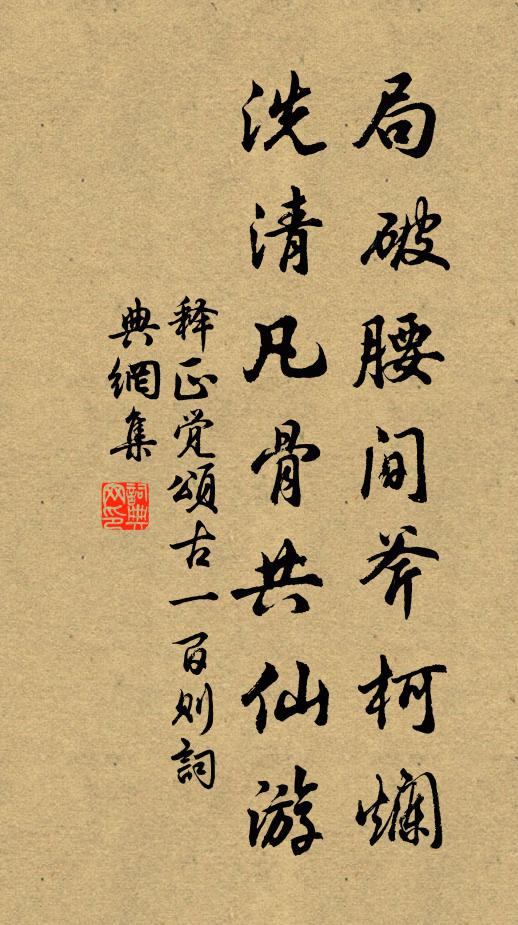 局破腰间斧柯爛
洗清凡骨共仙游
释正觉頌古一百则詞
典網集
詞典
网印